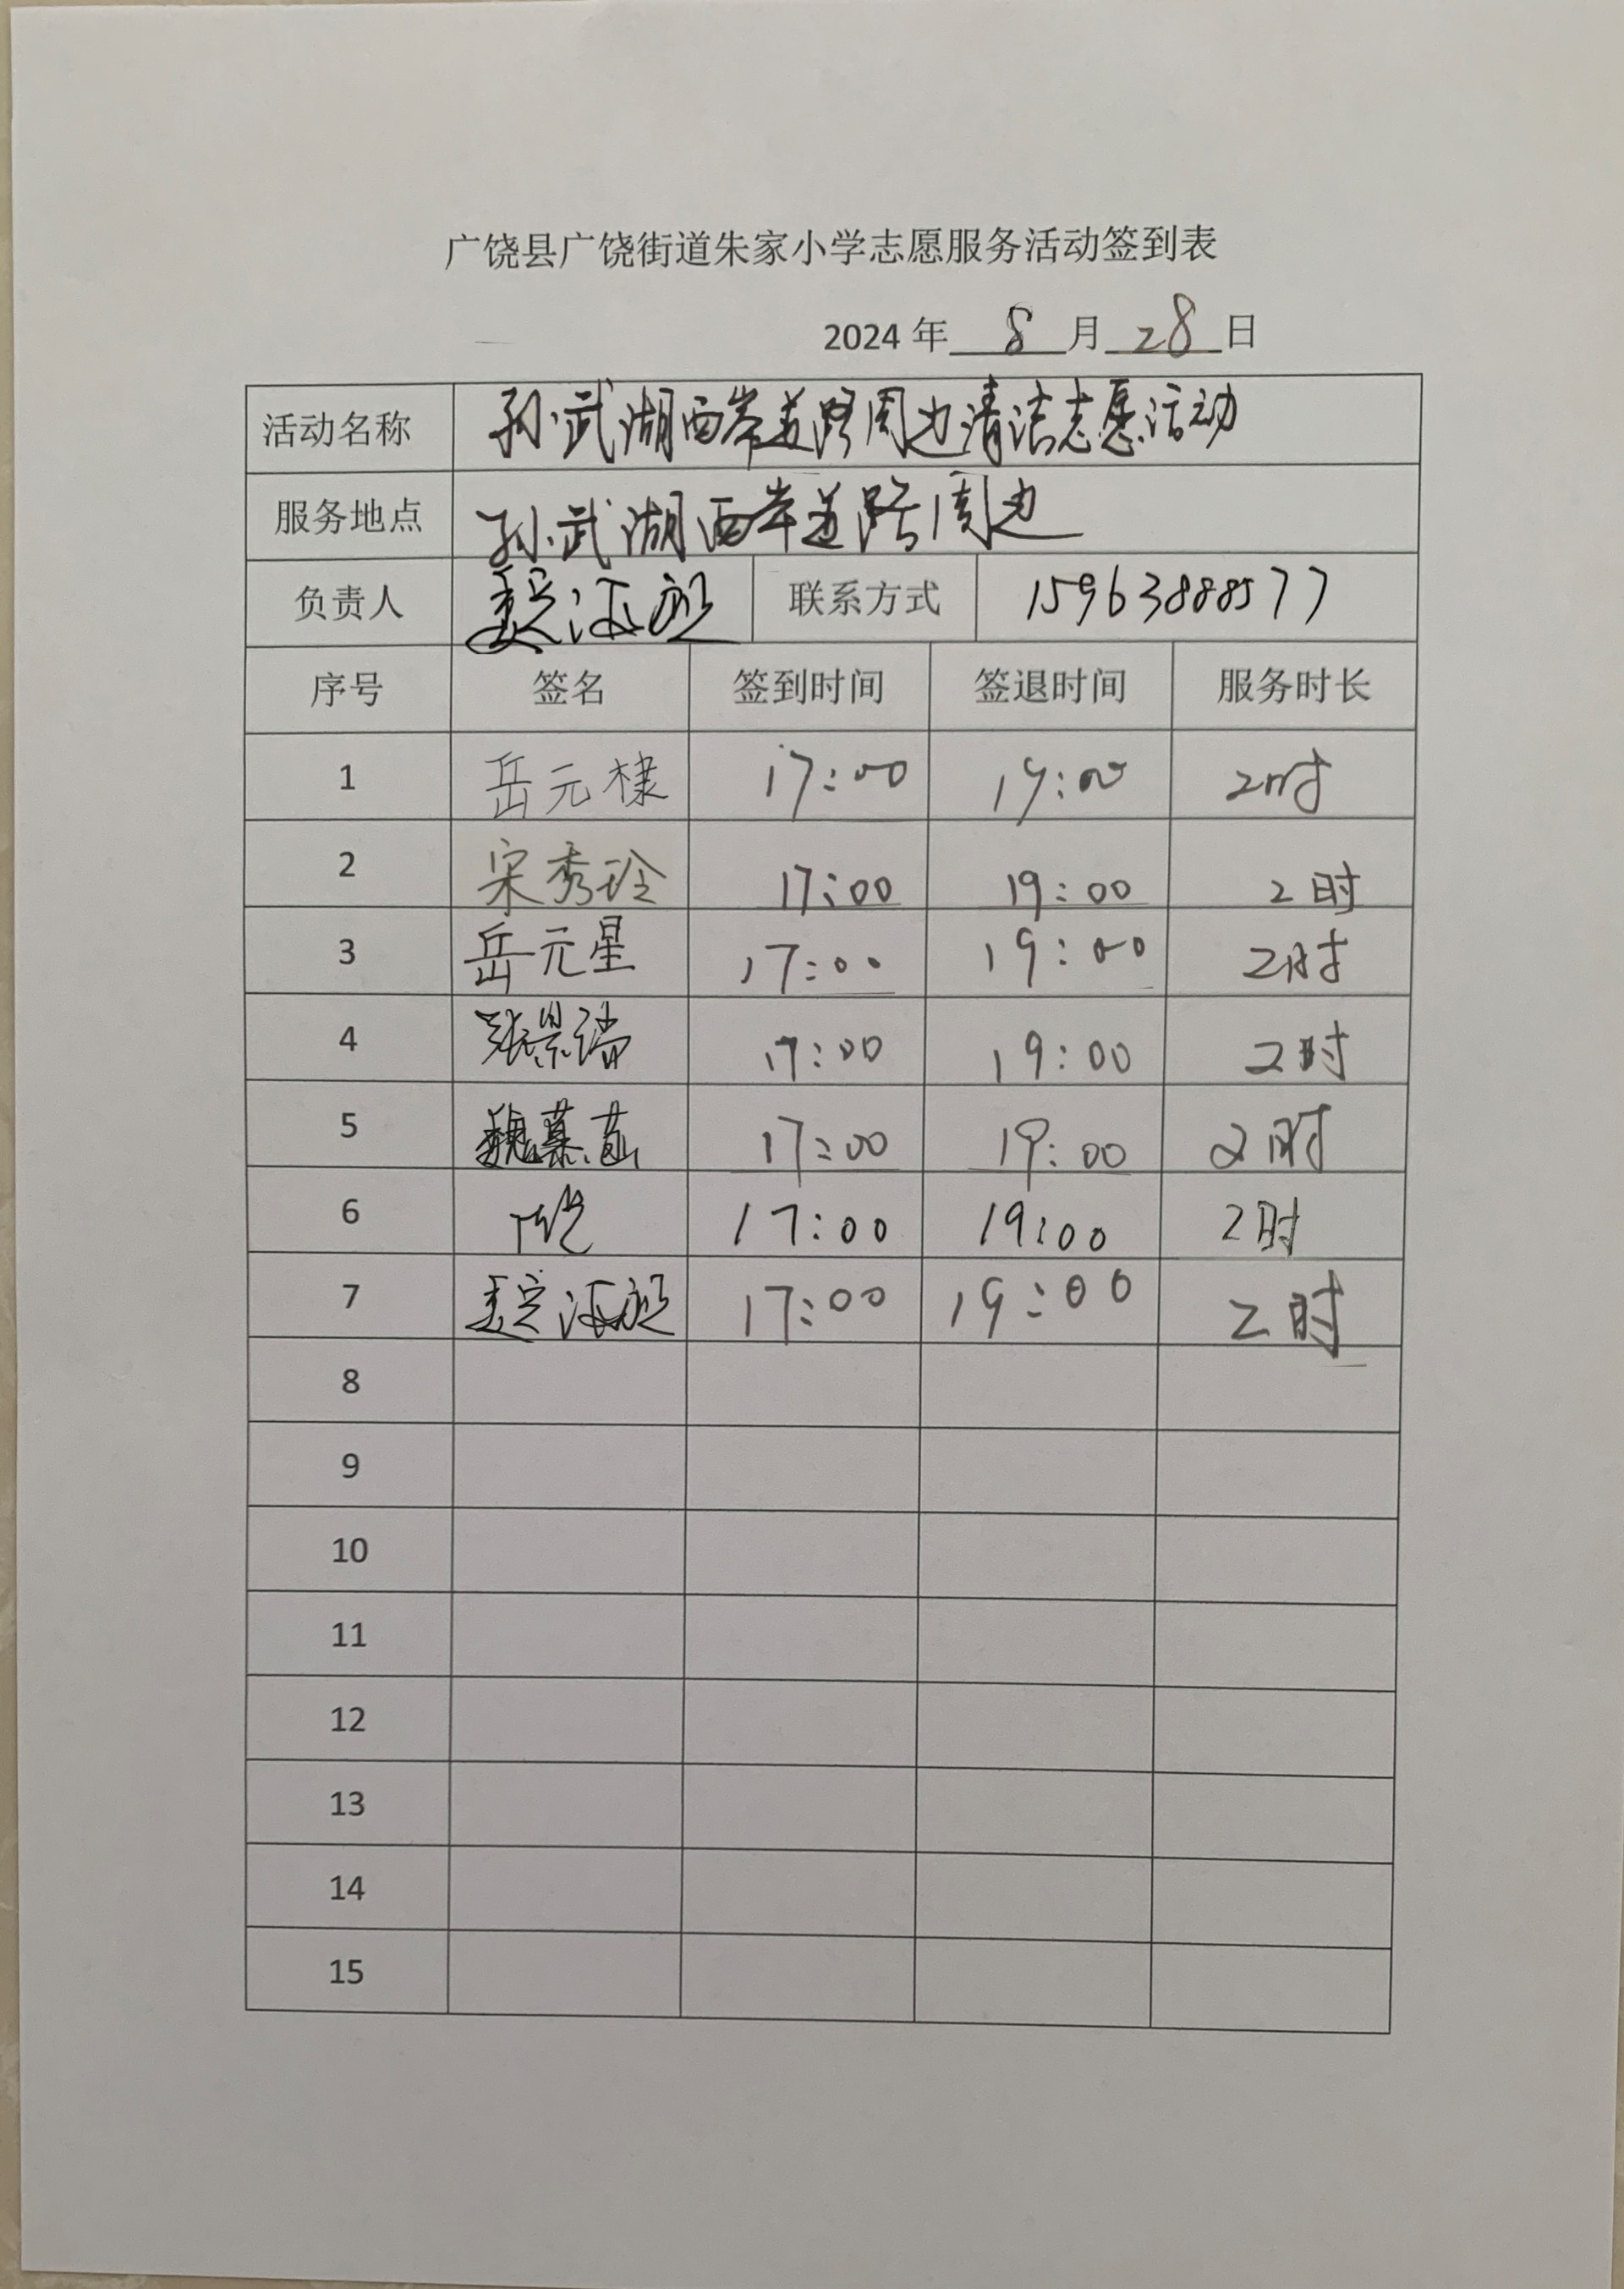 广饶县广饶街道朱家小学志愿服务活动签到表
2024 年 8 月 28 日
活动名称 孙武湖西岸道路周边清洁志愿活动
服务地点 孙武湖西岸道路周边
负责人 联系方式 15963888577
序号 签名 签到时间 签退时间 服务时长
1 岳元棣 17:00 19:00 2时
2 宋秀玲 17:00 19:00 2时
3 岳元星 17:00 19:00 2时
4 张景瑞 17:00 19:00 2时
5 魏慕菡 17:00 19:00 2时
6 17:00 19:00 2时
7 17:00 19:00 2时
8
9
10
11
12
13
14
15